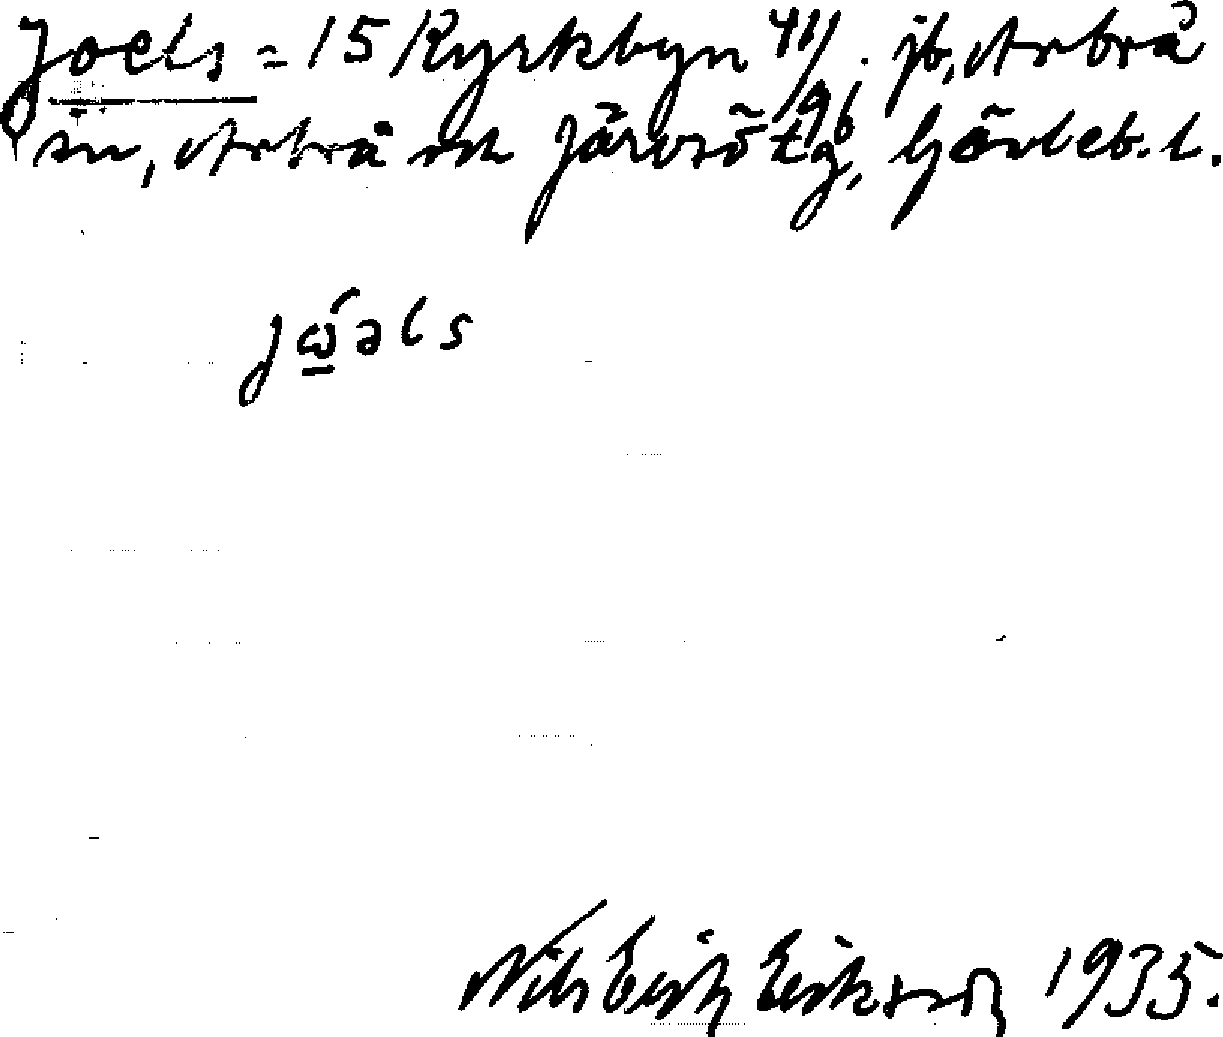 Joels = 15 Kyrkbyn 4¹/96. jb, Arbrå
sn, Arbrå och Järvsö tg, Gävleb. l.
jώəls
Nils Erik Eriksson 1935.